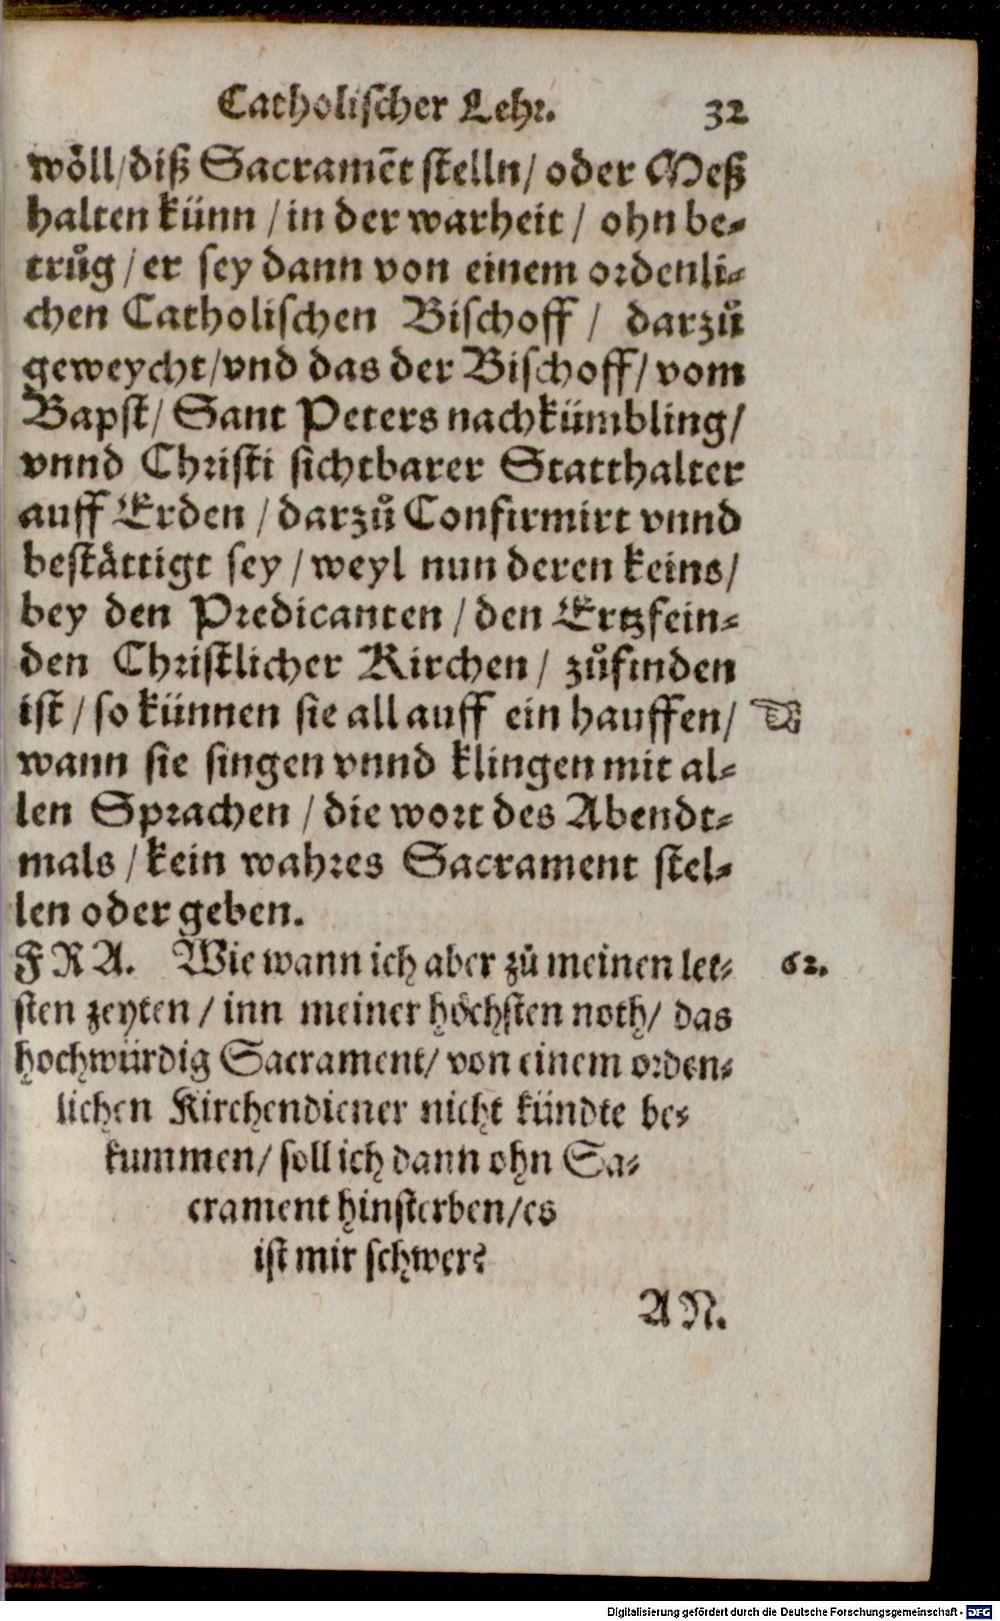 Catholischer Lehr. 32
wöll/diß Sacramẽt stelln/ oder Meß
halten künn / in der warheit / ohn be-
trůg / er sey dann von einem ordenli-
chen Catholischen Bischoff / darzů
geweycht/vnd das der Bischoff/ vom
Bapst/ Sant Peters nachkümbling/
vnnd Christi sichtbarer Statthalter
auff Erden / darzů Confirmirt vnnd
bestättigt sey / weyl nun deren keins/
bey den Predicanten / den Ertzfein-
den Christlicher Kirchen / zůfinden
ist / so künnen sie all auff ein hauffen/ ☜
wann sie singen vnnd klingen mit al-
len Sprachen / die wort des Abendt-
mals / kein wahres Sacrament stel-
len oder geben.
FRA. Wie wann ich aber zů meinen let- 62.
sten zeyten / inn meiner höchsten noth/ das
hochwürdig Sacrament/ von einem orden-
lichen Kirchendiener nicht kündte be-
kummen/ soll ich dann ohn Sa-
crament hinsterben/es
ist mir schwer?
AN.
Digitalisierung gefördert durch die Deutsche Forschungsgemeinschaft - DFG